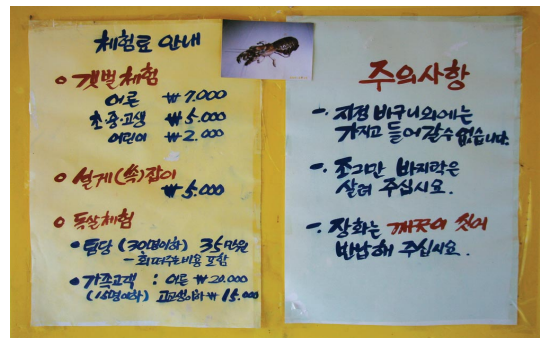 체험료 안내
• 갯벌체험
어른 ₩7.000
초·중·고생 ₩5.000
어린이 ₩2.000
• 설게(쏙)잡이
₩5.000
• 독살체험
• 팀당 (30명이하) 35만원
- 회떠주는비용 포함
• 가족고객 : 어른 ₩20.000
(15명이하) 고교생이하 ₩15.000
주의사항
- 지정 바구니외에는
가지고 들어갈수 없습니다.
- 조그만 바지락은
살려 주십시요.
- 장화는 깨끗이 씻어
반납해 주십시요.